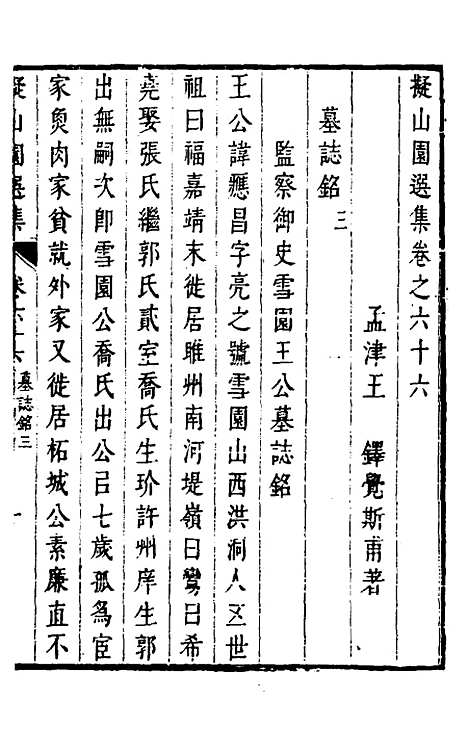 擬山園選集卷之六十六
孟津王 鐸覺斯甫著
墓誌銘 三
監察御史雪園王公墓誌銘
王公諱應昌字亮之號雪園山西洪洞人五世
祖曰福嘉靖末徙居睢州南河堤嶺曰鸞曰希
堯娶張氏繼郭氏貳室喬氏生玠許州庠生郭
出無嗣次卽雪園公喬氏出公㠯七歲孤爲宦
家魚肉家貧就外家又徙居柘城公素廉直不
擬山園選集 卷六十六 墓誌銘三 一